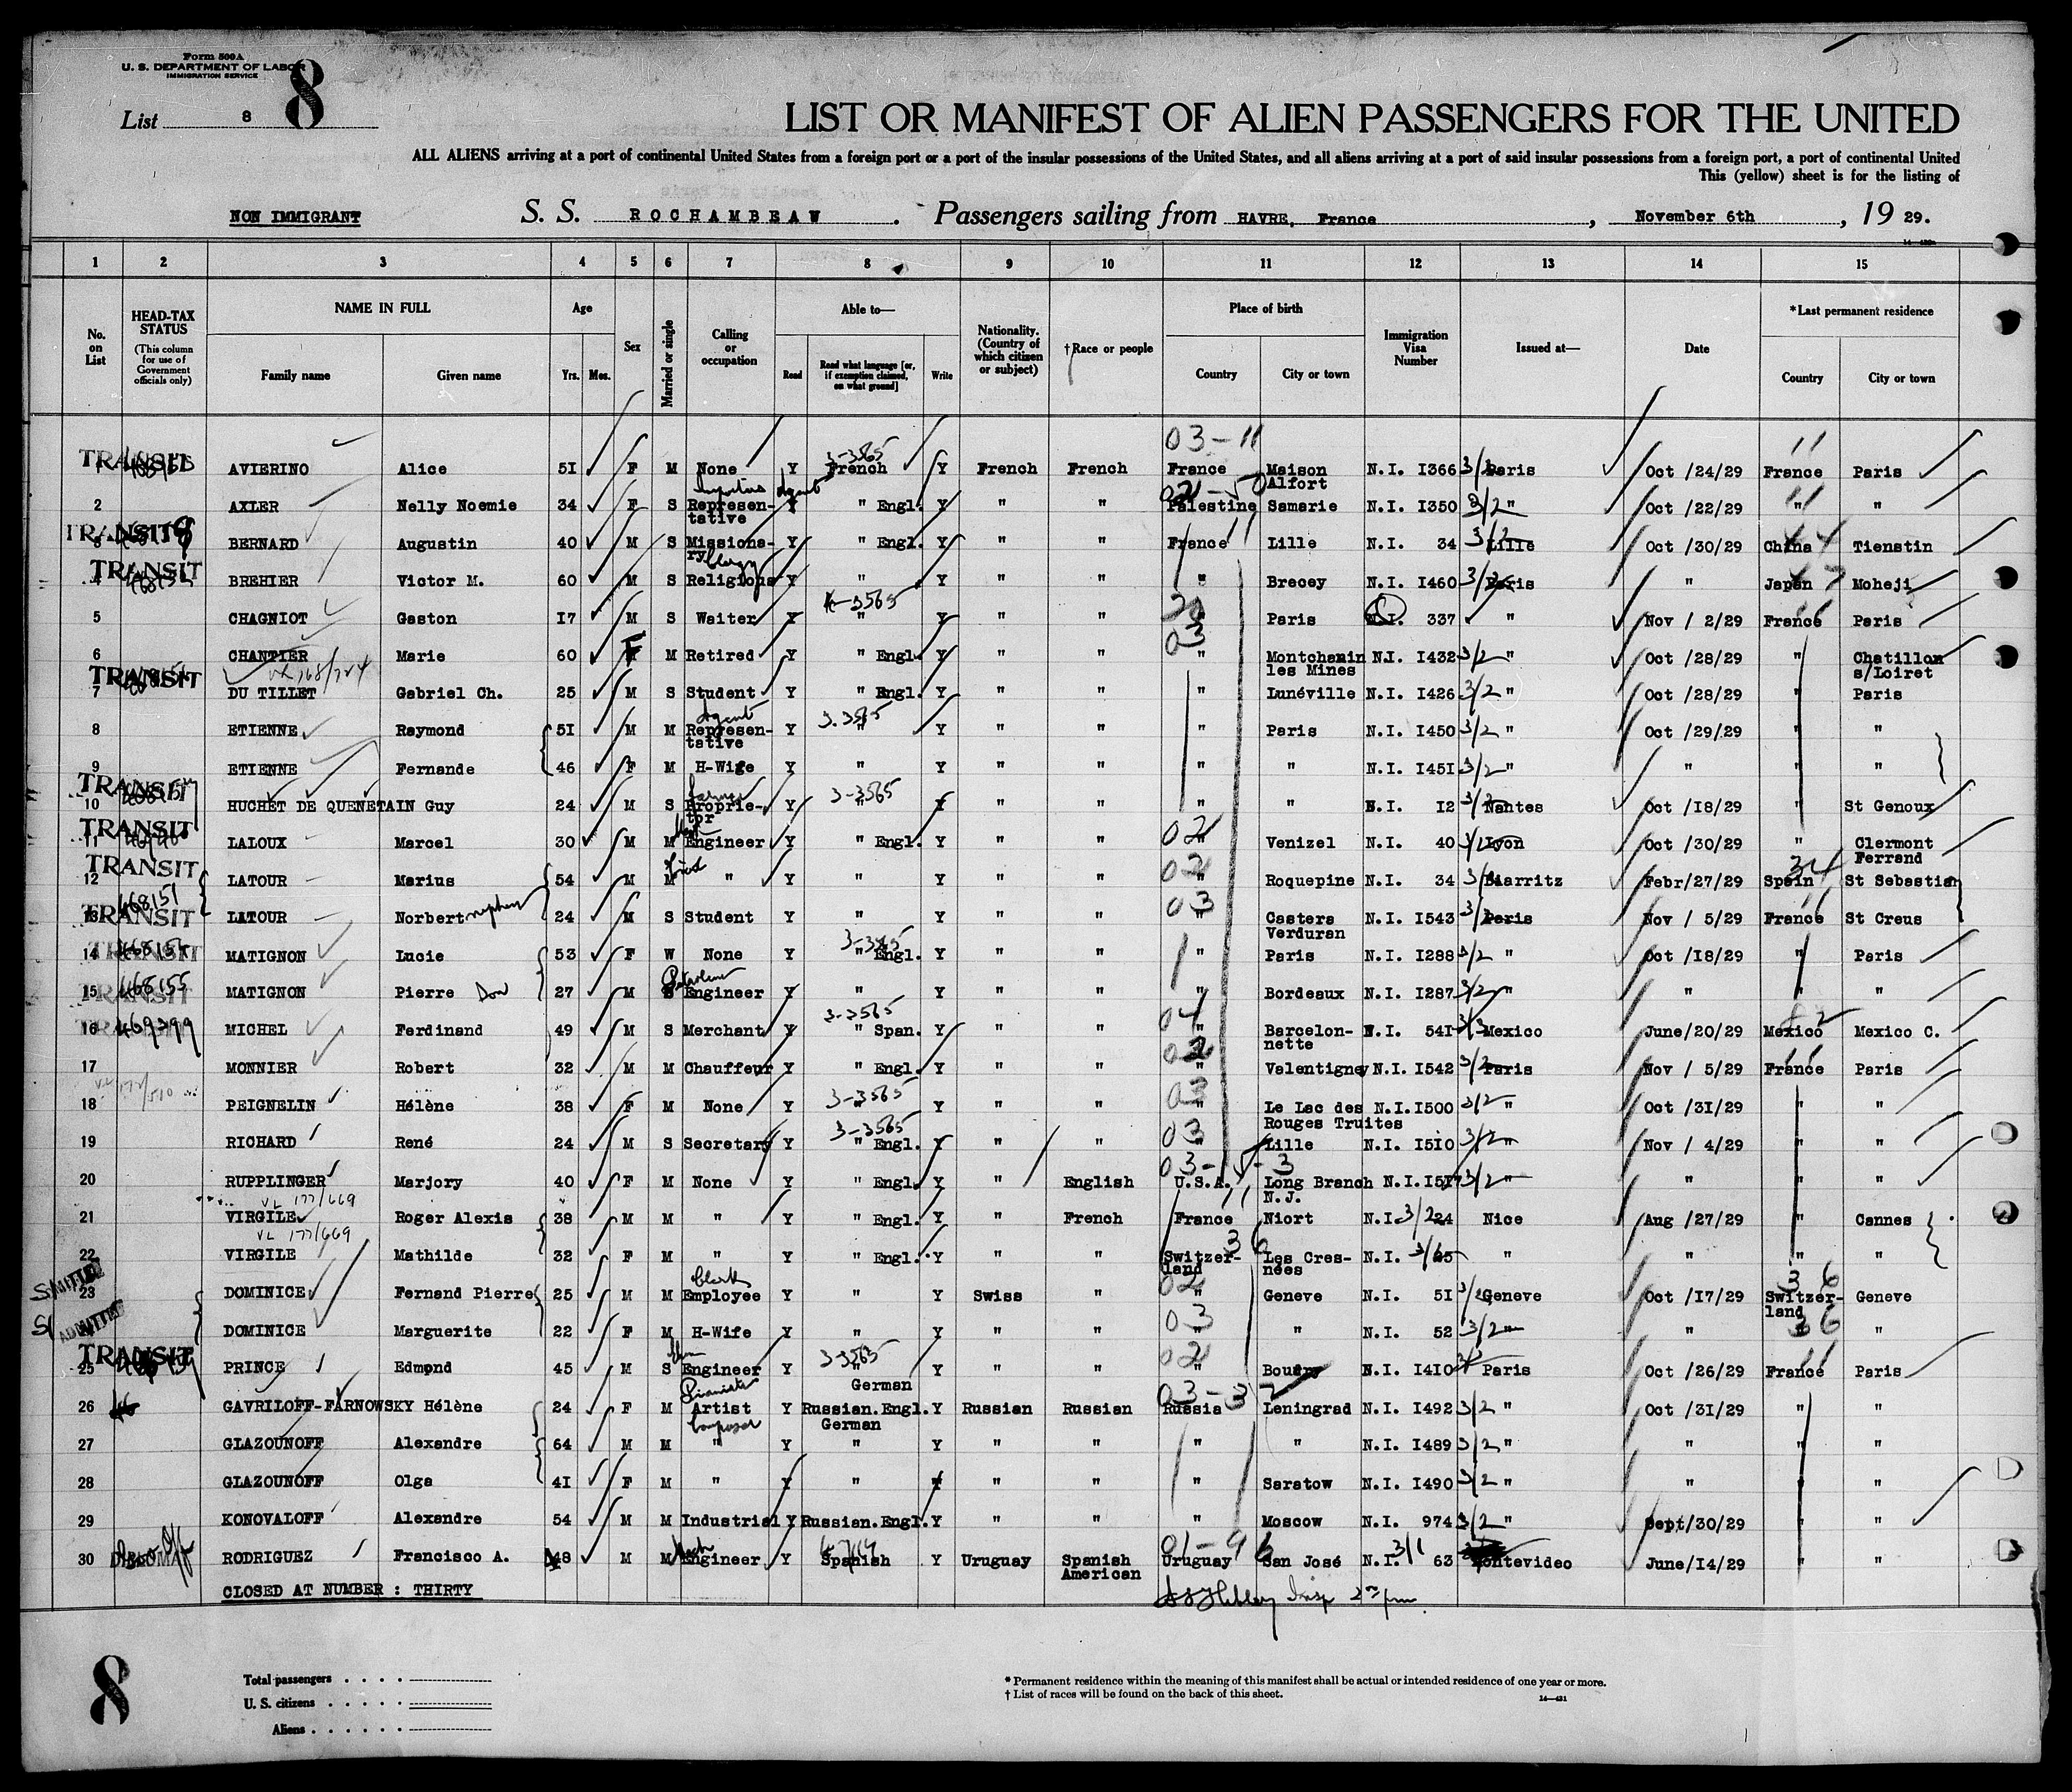 Form 500A
U. S. DEPARTMENT OF LABOR
IMMIGRATION SERVICE
8
List 8
LIST OR MANIFEST OF ALIEN PASSENGERS FOR THE UNITED
ALL ALIENS arriving at a port of continental United States from a foreign port or a port of the insular possessions of the United States, and all aliens arriving at a port of said insular possessions from a foreign port, a port of continental United
This (yellow) sheet is for the listing of
NON IMMIGRANT S. S. ROCHAMBEAW . Passengers sailing from HAVRE, France , November 6th , 19 29.
1 2 3 4 5 6 7 8 9 10 11 12 13 14 15
No. on List
HEAD-TAX STATUS
(This column for use of Government officials only)
NAME IN FULL
Family name Given name
Age
Yrs. Mos.
Sex
Married or single
Calling or occupation
Able to—
Read
Read what language [or, if exemption claimed, on what ground]
Write
Nationality. (Country of which citizen or subject)
†Race or people
Place of birth
Country City or town
Immigration Visa Number
Issued at—
Date
*Last permanent residence
Country City or town
03-11
TRANSIT 1 AVIERINO Alice 51 F M None Y 3-3565 French Y French French France Maison Alfort N.I. 1366 3/2 Paris Oct /24/29 France Paris
2 AXLER Nelly Noemie 34 F S Representative Agent Y " Engl. Y " " Palestine Samarie N.I. 1350 3/2 " Oct /22/29 " "
TRANSIT 3 BERNARD Augustin 40 M S Missionary Y " Engl. Y " " France Lille N.I. 34 3/2 Lille Oct /30/29 China Tienstin
TRANSIT 4 BREHIER Victor M. 60 M S Religious Clergy Y " Y " " " Brecey N.I. 1460 3/2 Paris " Japan Moheji
5 CHAGNIOT Gaston 17 M S Waiter Y " Y " " " Paris N.I. 337 " Nov / 2/29 France Paris
6 CHANTIER Marie 60 F M Retired Y " Engl. Y " " 03 " Montchanin les Mines N.I. 1432 3/2 " Oct /28/29 " Chatillon s/Loiret
TRANSIT 7 DU TILLET Gabriel Ch. 25 M S Student Y " Engl. Y " " " Lunéville N.I. 1426 3/2 " Oct /28/29 " Paris
8 ETIENNE Raymond 51 M M Agent Representative Y 3-3565 " Y " " " Paris N.I. 1450 3/2 " Oct /29/29 " "
9 ETIENNE Fernande 46 F M H-Wife Y " Y " " " " N.I. 1451 3/2 " " " "
TRANSIT 10 HUCHET DE QUENETAIN Guy 24 M S farmer Proprietor Y 3-3565 " Y " " " " N.I. 12 3/2 Nantes Oct /18/29 " St Genoux
TRANSIT 11 LALOUX Marcel 30 M M Engineer Y " Engl. Y " " 02 " Venizel N.I. 40 Lyon Oct /30/29 " Clermont Ferrand
TRANSIT 12 LATOUR Marius 54 M M " Y " Y " " 02 " Roquepine N.I. 34 3/2 Biarritz Febr/27/29 Spain 34 St Sebastian
468151
TRANSIT 13 LATOUR Norbert nephew 24 M S Student Y " Y " " 03 " Castera Verduran N.I. 1543 3/2 Paris Nov / 5/29 France St Creus
TRANSIT 14 468155 MATIGNON Lucie 53 F W None Y " Engl. Y " " " Paris N.I. 1288 3/2 " Oct /18/29 " Paris
TRANSIT 15 468155 MATIGNON Pierre Son 27 M S Engineer Y " Y " " " Bordeaux N.I. 1287 3/2 " " " "
16 469299 MICHEL Ferdinand 49 M S Merchant Y 3-3565 " Span. Y " " 04 " Barcelonnette N.I. 541 Mexico June/20/29 Mexico Mexico C.
17 MONNIER Robert 32 M M Chauffeur Y " Engl. Y " " 02 " Valentigney N.I. 1542 3/2 Paris Nov / 5/29 France Paris
18 PEIGNELIN Hélène 38 F M None Y 3-3565 " Y " " 03 " Le Lac des Rouges Truites N.I. 1500 3/2 " Oct /31/29 " "
19 RICHARD René 24 M S Secretary Y 3-3565 " Engl. Y " " 03 " Lille N.I. 1510 3/2 " Nov / 4/29 " "
20 RUPPLINGER Marjory 40 F M None Y " Engl. Y " English U.S.A. Long Branch N.J. N.I. 1517 3/2 " " " "
VL 177/669
21 VIRGILE Roger Alexis 38 M M " Y " Engl. Y " French France Niort N.I. 3/2 24 Nice Aug /27/29 " Cannes
VL 177/669
22 VIRGILE Mathilde 32 F M " Y " Engl. Y " " Switzerland 36 Les Cresnées N.I. " " " "
23 DOMINICE Fernand Pierre 25 M M Clerk Employee Y " Y Swiss " 02 " Geneve N.I. 51 3/2 Geneve Oct /17/29 36 Switzerland Geneve
ADMITTED DOMINICE Marguerite 22 F M H-Wife Y " Y " " 03 " " N.I. 52 3/2 " " 36 " "
TRANSIT 25 PRINCE Edmond 45 M S Engineer Y 3-3565 " Y " " 02 " Boudry N.I. 1410 Paris Oct /26/29 France Paris
26 GAVRILOFF-FARNOWSKY Hélène 24 F M Pianiste Artist Y German Russian.Engl. Y Russian Russian 03-37 Russia Leningrad N.I. 1492 3/2 " Oct /31/29 " "
27 GLAZOUNOFF Alexandre 64 M M Composer " Y German " Y " " " " N.I. 1489 3/2 " " " "
28 GLAZOUNOFF Olga 41 F M " Y " Y " " " Saratow N.I. 1490 3/2 " " " "
29 KONOVALOFF Alexandre 54 M M Industrial Y Russian.Engl. Y " " " Moscow N.I. 974 3/2 " Sept/30/29 " "
30 RODRIGUEZ Francisco A. 48 M M Mech Engineer Y Spanish Y Uruguay Spanish American 01-96 Uruguay San José N.I. 3/1 63 Montevideo June/14/29 " "
CLOSED AT NUMBER : THIRTY
8
Total passengers . . . .
U. S. citizens . . . . .
Aliens . . . . . .
* Permanent residence within the meaning of this manifest shall be actual or intended residence of one year or more.
† List of races will be found on the back of this sheet.
14—421